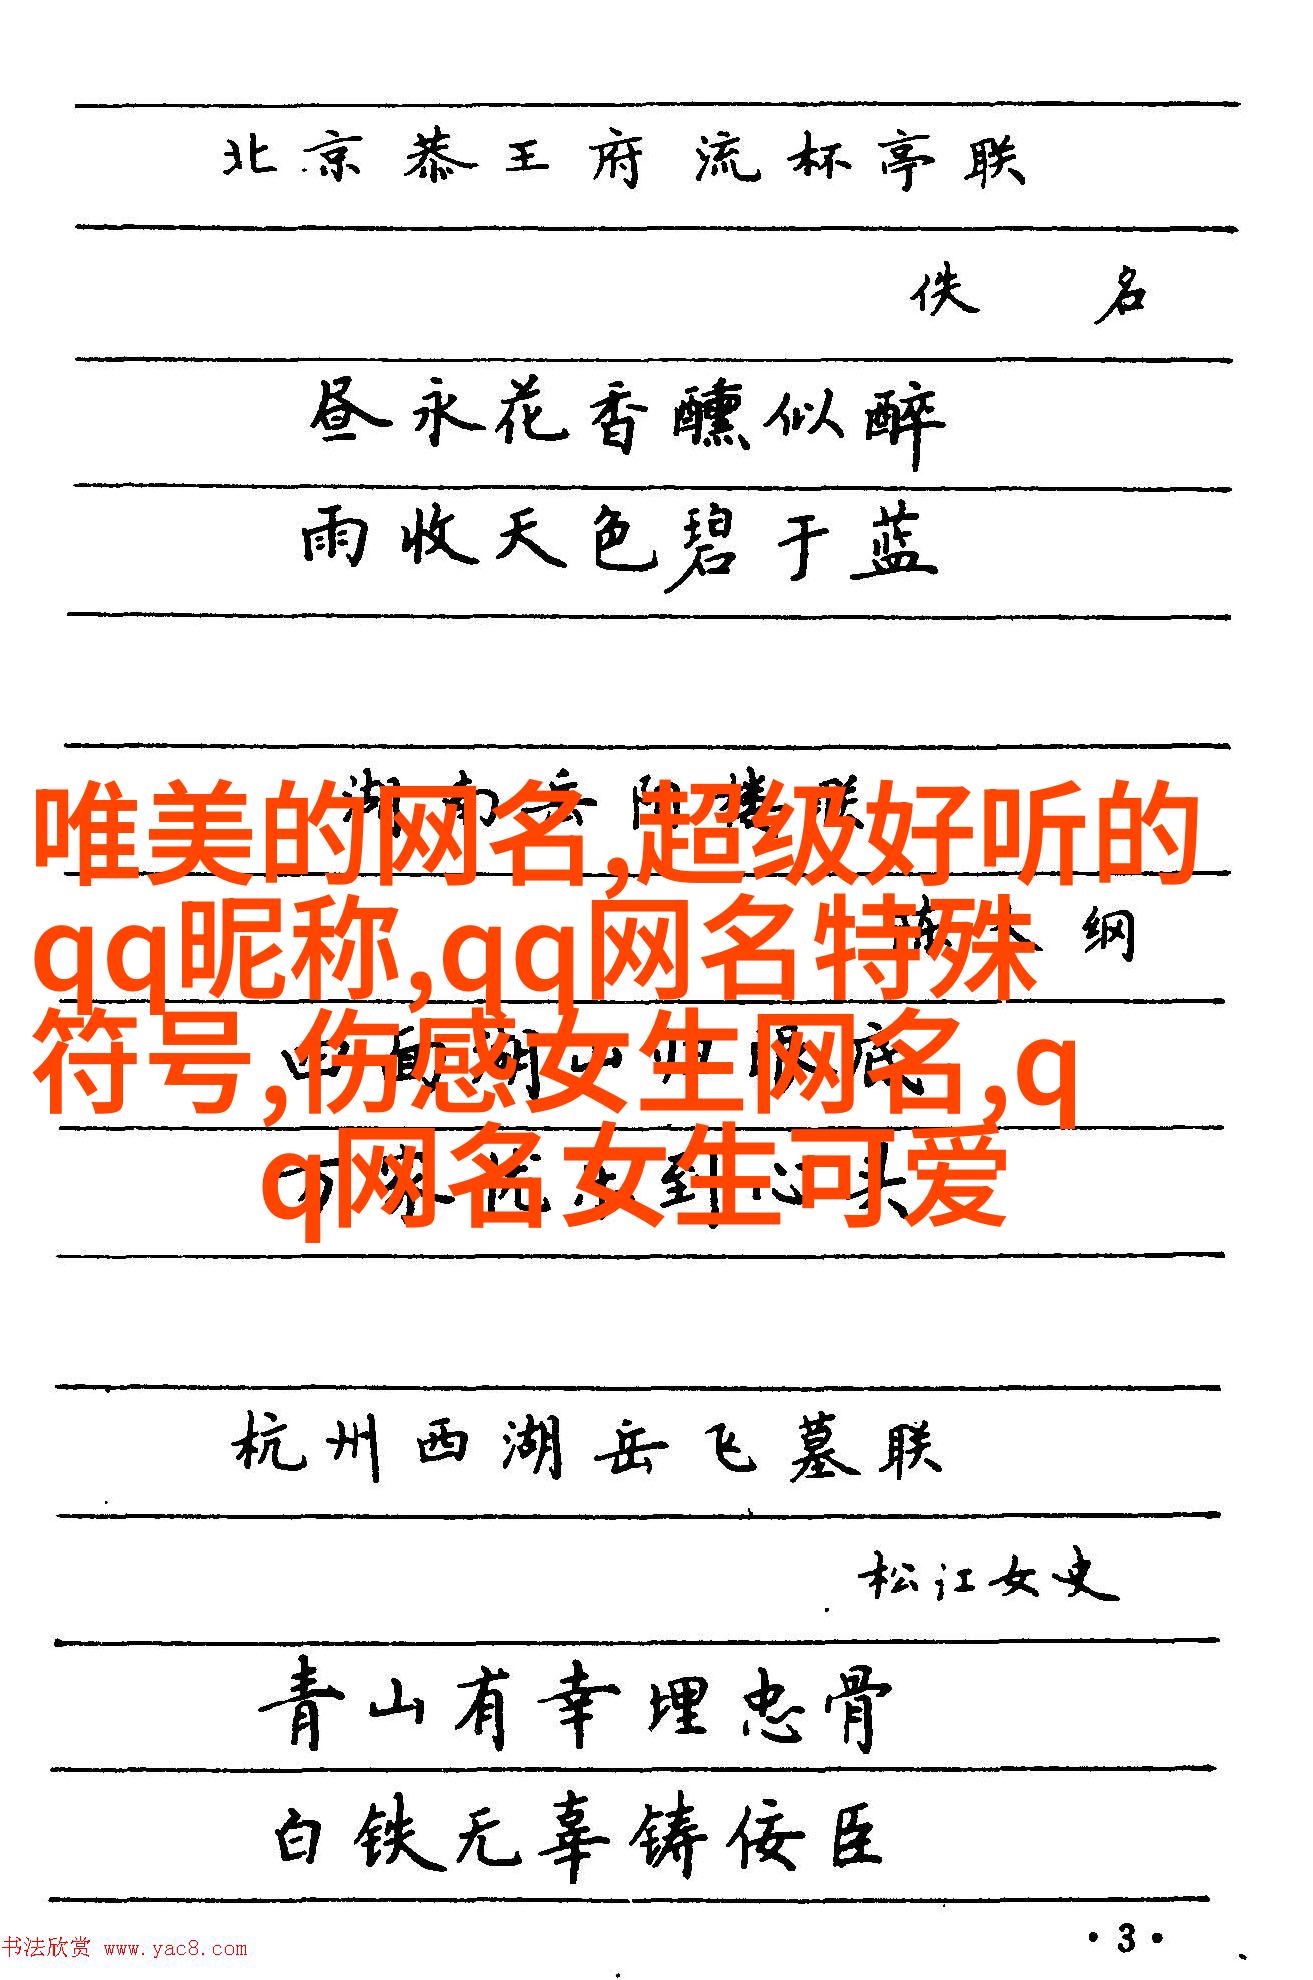 北京恭王府流杯亭联
佚 名
昼永花香醺似醉
雨收天色碧于蓝
湖南岳阳楼联
唯美的网名,超级好听的
纲
qq昵称,qq网名特殊
四面湖山归眼底
符号,伤感女生网名,q
万家忧乐到心头
q网名女生可爱
杭州西湖岳飞墓联
松江女史
青山有幸埋忠骨
白铁无辜铸佞臣
·3·
书法欣赏 www.yac8.com